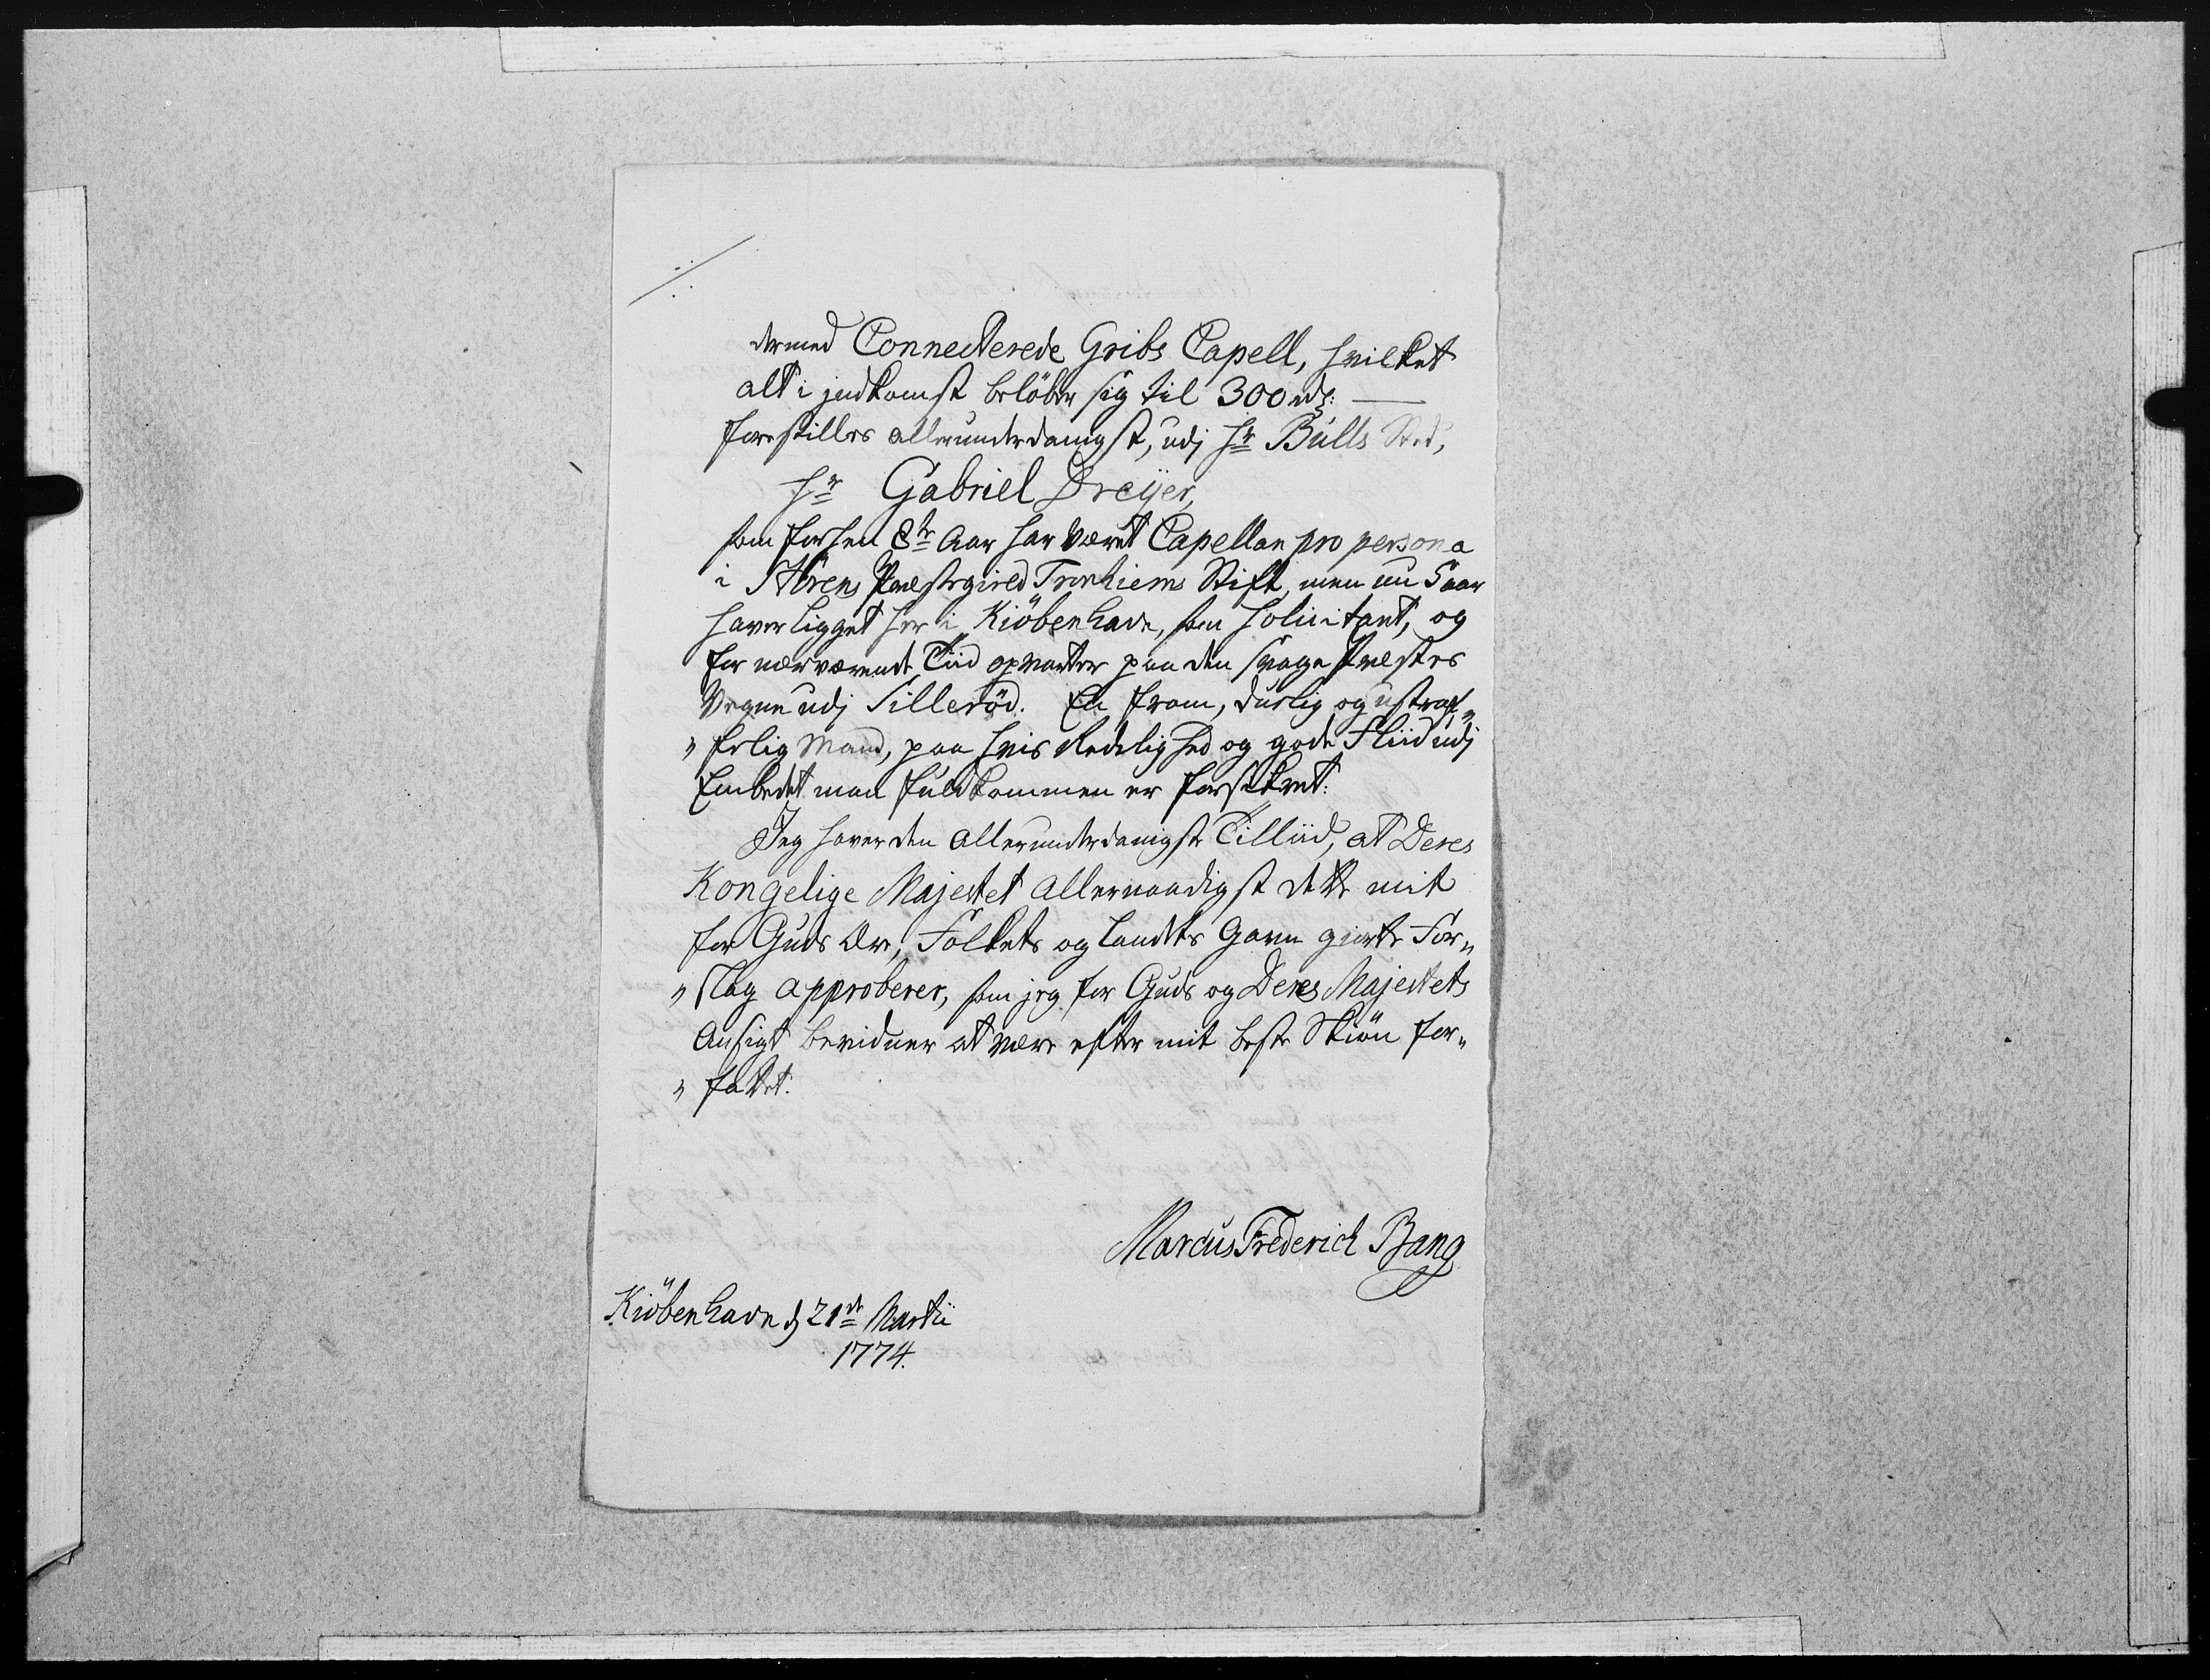 dermed Connecterede Gribs Capell, hvilket
alt i jndkomst beløber sig til 300 rdr:
forestilles allerunderdanigst, udj Hr Bulls Sted,
Hr Gabriel Dreÿer,
som forhen 8te Aar har været Capellan pro persona
i Præstegield Tronhiems Stift, men nu 5 aar
haver ligget her i Kiöbenhavn, som Solicitant, og
for nærværende Tiid opvarter paa den svage Præstes
Vegne udj Silleröd. En from, duelig og ustraf„
„felig Mand, paa hvis Redelighed og gode Fliid udj
Embedet man fuldkommen er forsikret:
Jeg haver den allerunderdanigste Tilliid, at Deres
Kongelige Majestet allernaadigst dette mit
for Guds Ære, Folkets og Landets Gavn giorte For„
„slag approberer, som jeg for Guds og Deres Majestets
Ansigt bevidner at være efter mit beste Skiön for„
„fattet:
Marcus Frederich Bang
Kiöbenhavn d 21de Martii
1774.